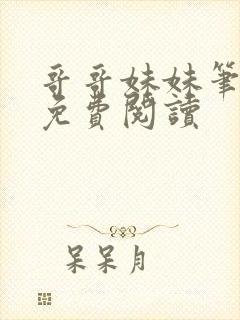 哥哥妹妹筆
免費閱讀
呆呆月